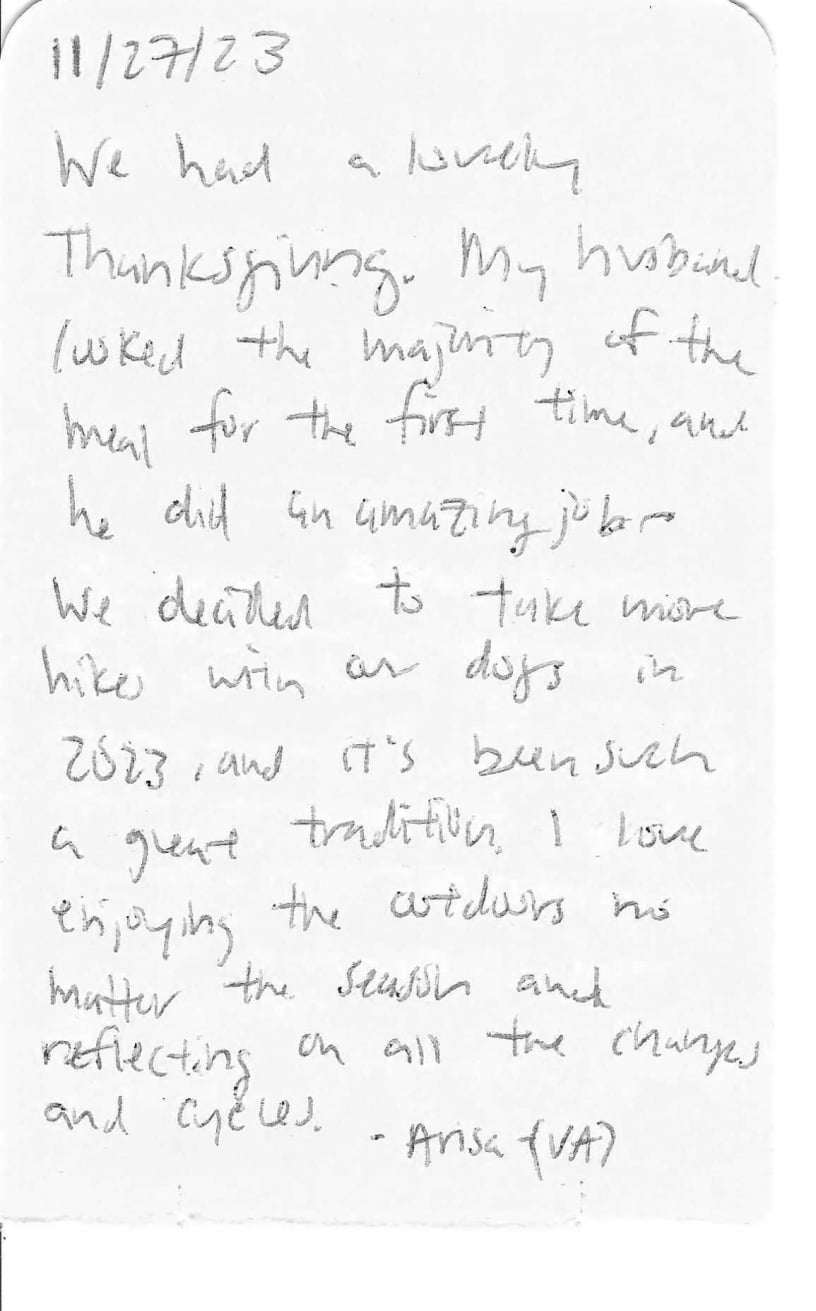 11/27/23
We had a lovely
Thanksgiving. My husband
cooked the majority of the
meal for the first time, and
he did an amazing job -
We decided to take more
hikes with our dogs in
2023, and it's been such
a great tradition. I love
enjoying the outdoors no
matter the season and
reflecting on all the changes
and cycles.
- Arisa (VA)